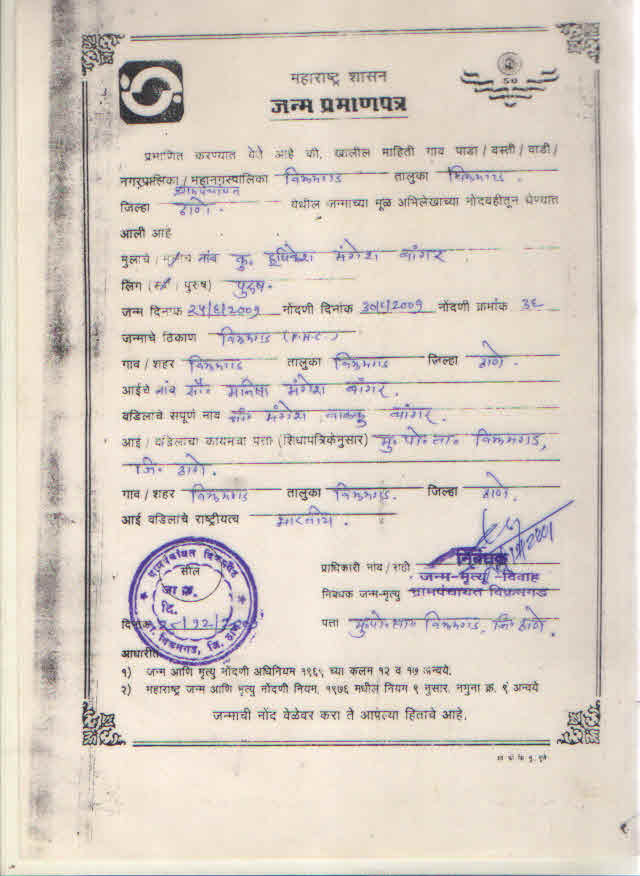 महाराष्ट्र शासन
५०
जन्म प्रमाणपत्र
प्रमाणित करण्यात येते आहे की, खालील माहिती गाव पाडा / वस्ती / वाडी /
नगरपालिका / महानगरपालिका विक्रमगड तालुका विक्रमगड.
ग्रामपंचायत
जिल्हा ठाणे. येथील जन्माच्या मूळ अभिलेखाच्या नोंदवहीतून घेण्यात
आली आहे
मुलाचे / मुलीचे नांव कु. हृषिकेश मंगेश बांगर
लिंग (स्त्री / पुरुष) पुरुष.
जन्म दिनांक २५/६/२००१ नोंदणी दिनांक ३०/६/२००१ नोंदणी क्रमांक ३६
जन्माचे ठिकाण विक्रमगड (P.H.C.)
गाव / शहर विक्रमगड तालुका विक्रमगड जिल्हा ठाणे.
आईचे नांव सौ. मनिषा मंगेश बांगर.
वडिलाचे संपूर्ण नाव श्री. मंगेश बांगर.
आई / वडिलांचा कायमचा पत्ता (शिधापत्रिकेनुसार) मु. पो. ता. विक्रमगड,
जि. ठाणे.
गाव / शहर विक्रमगड तालुका विक्रमगड. जिल्हा ठाणे.
आई वडिलांचे राष्ट्रीयत्व भारतीय.
ग्रामपंचायत विक्रमगड
सील
जा. क्र.
दि.
ता. विक्रमगड, जि. ठाणे
प्राधिकारी नांव / सही निबंधक
जन्म-मृत्यु-विवाह
निबंधक जन्म-मृत्यु ग्रामपंचायत विक्रमगड
दिनांक पत्ता मु. पो. ता. विक्रमगड, जि. ठाणे.
आधारीत
१) जन्म आणि मृत्यु नोंदणी अधिनियम १९६९ च्या कलम १२ व १७ अन्वये.
२) महाराष्ट्र जन्म आणि मृत्यु नोंदणी नियम, १९७६ मधील नियम ९ नुसार, नमुना क्र. ९ अन्वये
जन्माची नोंद वेळेवर करा ते आपल्या हिताचे आहे.